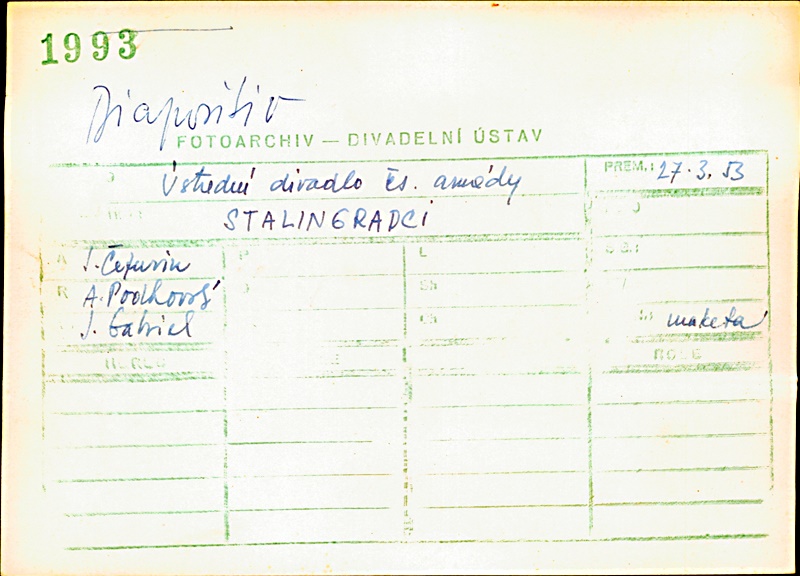 1993
Diapositiv
FOTOARCHIV — DIVADELNÍ ÚSTAV
Ústřední divadlo čs. armády PREM.: 27.3.53
STALINGRADCI
A J. Čepurin P L
R A. Podhorský Sh
J. Gabriel Ch maketa
HEREC ROLE